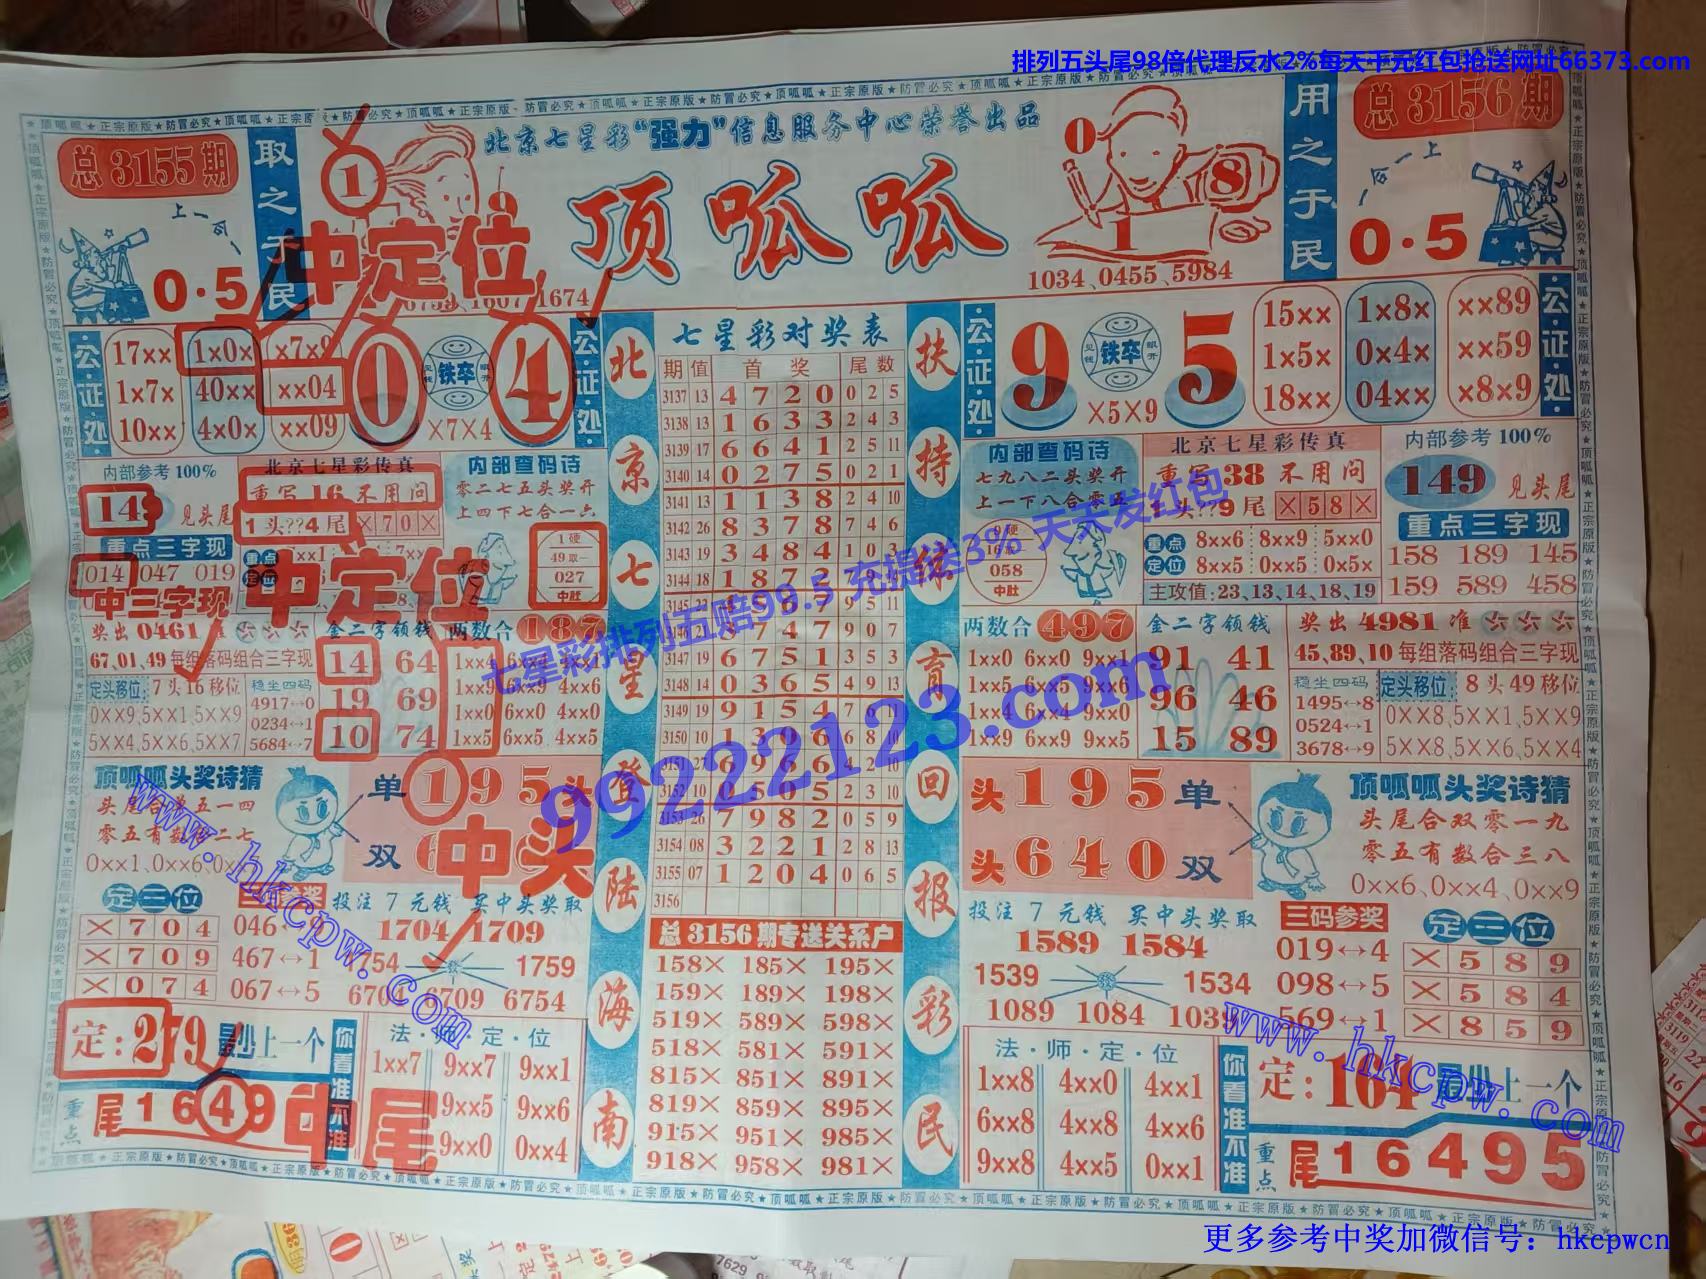 排列五头尾98倍代理反水2%每天千元红包抢送网址66373.com
总3155期
取之于民
北京七星彩“强力”信息服务中心荣誉出品
用之于民
总3156期
顶呱呱
上一合一
0·5
1
中定位
0
8
1
1034,0455,5984
一合一上
0·5
公证处
17×× 1×0×
1×7× 40×× ××04
10×× 4×0× ××09
0 铁卒 4
×7×4
公证处
北京七星登陆海南
七星彩对奖表
期 值 首奖 尾数
3137 13 4720 0 2 5
3138 13 1633 2 4 3
3139 17 6641 2 5 11
3140 14 0275 0 2 1
3141 13 1138 2 4 10
3142 26 8378 7 4 6
3143 19 3484 1 0 3
3144 18 1873
3147 19 6751 3 5 3
3148 14 0365 4 9 13
3149 19 9154
3150 10 1396 6 8 10
3151 27 6966 4 2 10
3152 10 0505 2 3 10
3153 26 7982 0 5 9
3154 08 3221 2 8 13
3155 07 1204 0 6 5
3156
扶持体育回报彩民
公证处
9 铁卒 5
×5×9
15×× 1×8× ××89
1×5× 0×4× ××59
18×× 04×× ×8×9
公证处
内部参考 100%
149 见头尾
重点三字现
014 047 019
中三字现
北京七星彩传真
重写16 不用问
1头??4尾 ×70×
中定位
内部查码诗
零二七五头奖开
上四下七合一六
1硬
49取一
027
中肚
内部查码诗
七九八二头奖开
上一下八合零五
058
中肚
北京七星彩传真
重写38 不用问
1头??9尾 ×58×
重点定位
8××6 8××9 5××0
8××5 0××5 0×5×
主攻值:23,13,14,18,19
内部参考 100%
149 见头尾
重点三字现
158 189 145
159 589 458
奖出0461准
67,01,49每组落码组合三字现
定头移位: 7头16移位
0××9,5××1,5××9
5××4,5××6,5××7
稳坐四码
4917↔0
0234↔1
5684↔7
金二字领钱
14 64
19 69
10 74
两数合 187
1××4
1××9 6××9 4××6
1××0 6××0 4××0
1××5 6××5 4××5
两数合 497
1××0 6××0 9××1
1××5 6××5 9××6
1××4 6××4 9××0
1××9 6××9 9××5
金二字领钱
91 41
96 46
15 89
奖出4981准
45,89,10每组落码组合三字现
稳坐四码
1495↔8
0524↔1
3678↔9
定头移位: 8头49移位
0××8,5××1,5××9
5××8,5××6,5××4
顶呱呱头奖诗猜
头尾合单五一四
零五有数合二七
0××1,0××6,0
单 195头
双
中头
头195单
头640双
顶呱呱头奖诗猜
头尾合双零一九
零五有数合三八
0××6、0××4、0××9
定三位
×704
×709
×074
467↔1
067↔5
投注7元钱 买中头奖取
1704 1709
1754 1759
6704 6709 6754
总3156期专送关系户
158× 185× 195×
159× 189× 198×
519× 589× 598×
518× 581× 591×
815× 851× 891×
819× 859× 895×
915× 951× 985×
918× 958× 981×
投注7元钱 买中头奖取
1589 1584
1539 1534
1089 1084 1039
三码参奖
019↔4
098↔5
569↔1
定三位
×589
×584
×859
定:279 最少上一个
重点 尾1649
中尾
你看准不准
法·师·定·位
1××7 9××7 9××1
9××5 9××6
9××0 0××4
法·师·定·位
1××8 4××0 4××1
6××8 4××8 4××6
9××8 4××5 0××1
你看准不准
定:164 最少上一个
重点 尾16495
七星彩排列五赔99.5 充提送3% 天天发红包
99222123.com
www.hkcpw.com
www.hkcpw.com
更多参考中奖加微信号：hkcpwcn